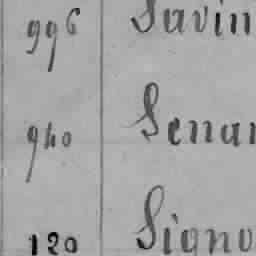 996 Savin
940 Senar
120 Signo